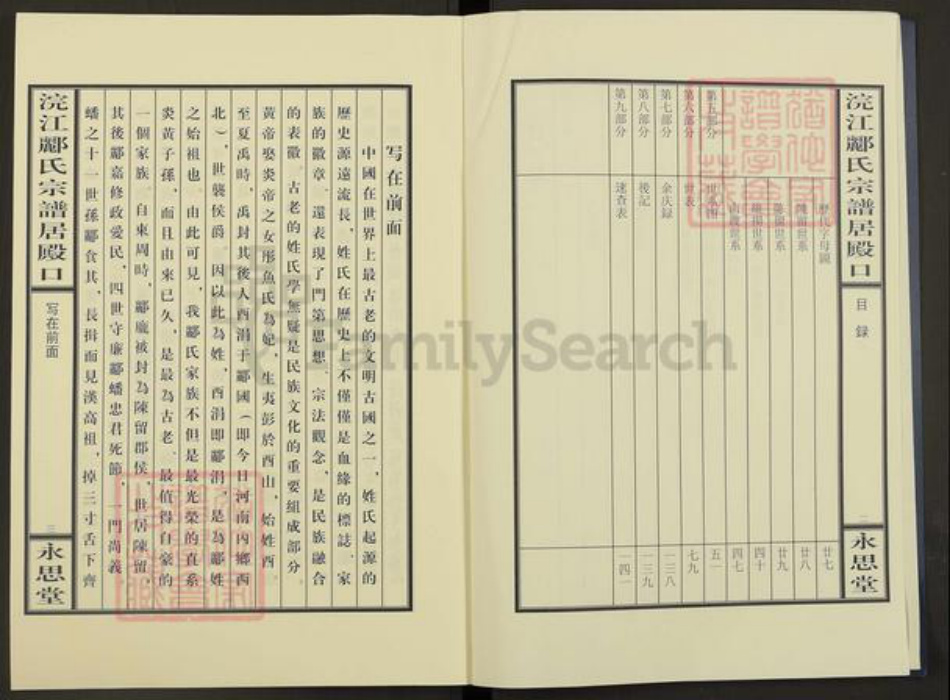 浣江酈氏宗譜居殿口
目录
二
永思堂
歷代字母圖 廿七
陳留世系 廿八
廿九
四十
世系 四七
第五部分 五一
第六部分 世表 七九
第七部分 余庆録 一三八
第八部分 後記 一三九
第九部分 速查表 一四一
写在前面
中國在世界上最古老的文明古國之一，姓氏起源的
歷史源遠流長，姓氏在歷史上不僅僅是血緣的標誌、家
族的徽章，還表現了門第思想、宗法觀念，是民族融合
的表徽。古老的姓氏學無疑是民族文化的重要組成部分
黃帝娶炎帝之女彤魚氏為妃，生夷彭於酉山，始姓酉
至夏禹時，禹封其後人酉涓于酈國（即今日河南内鄉西
北），世襲侯爵，因以此為姓，酉涓即酈涓，是為酈姓
之始祖也。由此可見，我酈氏家族不但是最光榮的直系
炎黃子孫，而且由來已久，是最為古老、最值得自豪的
一個家族。自東周時，酈龐被封為陳留郡侯，世居陳留，
其後酈嘉修政愛民，四世守廉酈蟠忠君死節，一門尚義
蟠之十一世孫酈食其，長揖而見漢高祖，掉三寸舌下齊
浣江酈氏宗譜居殿口
写在前面
三
永思堂
FamilySearch